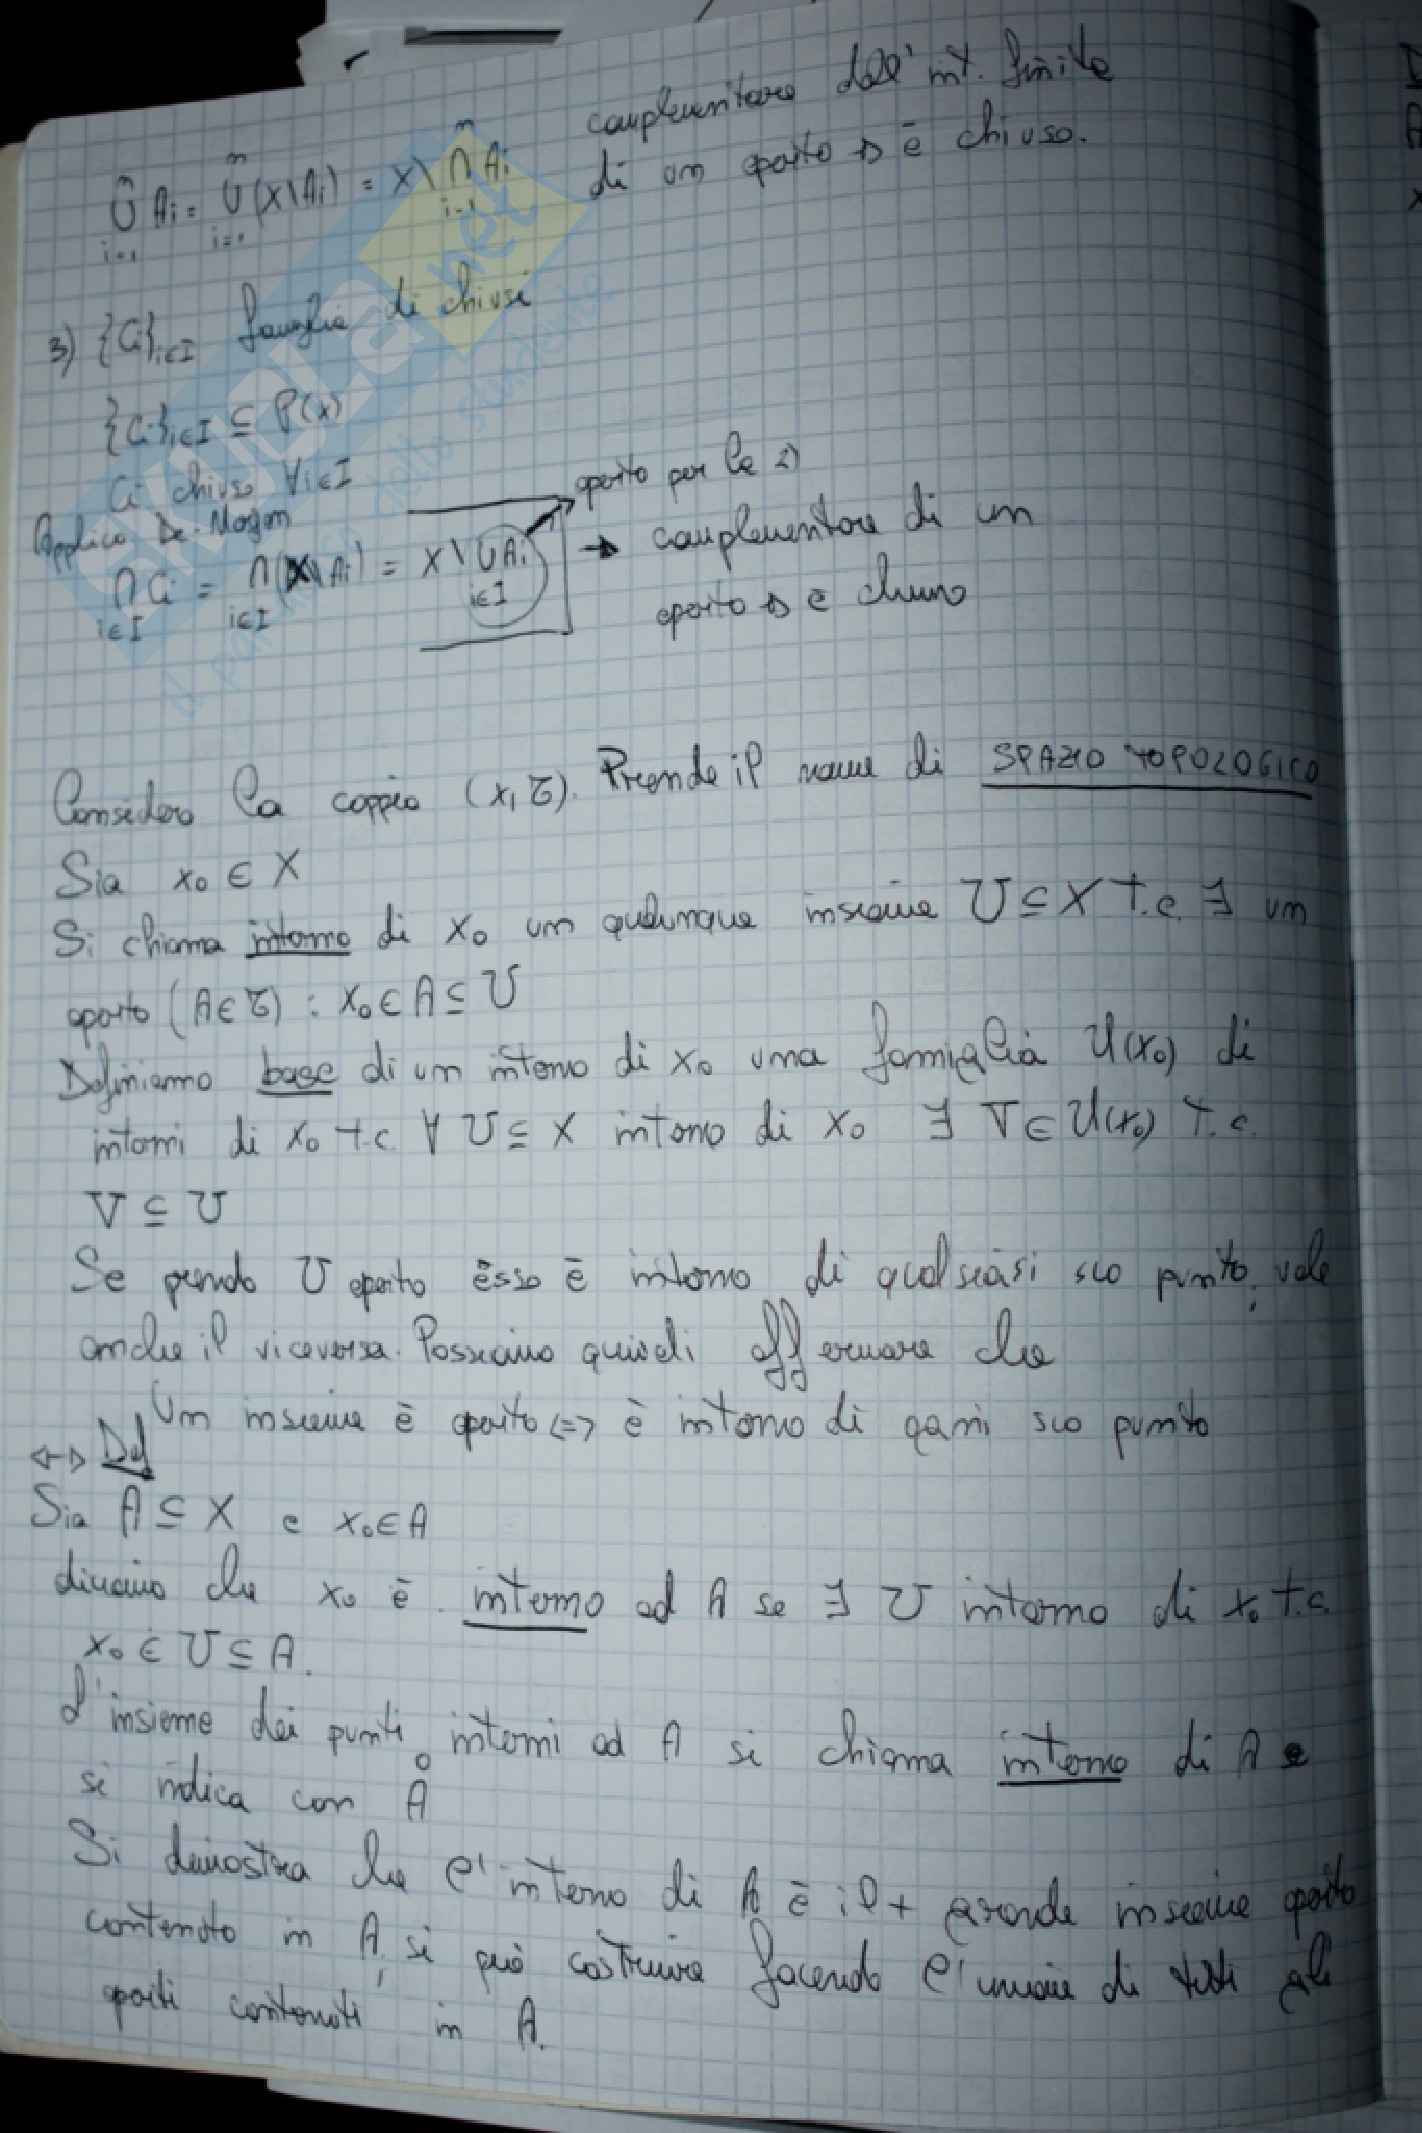 complementare dell' int. finita
⋃ᵢ₌₁ⁿ Ai = ⋃ᵢ₌₁ⁿ (X\Ai) = X\ ⋂ᵢ₌₁ⁿ Ai di un aperto ⇒ è chiuso.
3) {Ci}i∈I famiglia di chiusi
{Ci}i∈I ⊆ P(X)
Ci chiuso ∀i∈I
aperto per la 2)
Applico De Morgan
⋂i∈I Ci = ⋂i∈I (X\Ai) = X\ ⋃i∈I Ai → complementare di un
aperto ⇒ è chiuso
Considero la coppia (X, τ). Prende il nome di SPAZIO TOPOLOGICO
Sia x₀ ∈ X
Si chiama intorno di x₀ un qualunque insieme U ⊆ X t.c. ∃ un
aperto (A∈τ) : x₀∈A⊆U
Definiamo base di un intorno di x₀ una famiglia U(x₀) di
intorni di x₀ t.c. ∀ U⊆X intorno di x₀ ∃ V∈U(x₀) t.c.
V ⊆ U
Se prendo U aperto esso è intorno di qualsiasi suo punto, vale
anche il viceversa. Possiamo quindi affermare che
Un insieme è aperto <=> è intorno di ogni suo punto
↔ Def
Sia A ⊆ X e x₀∈A
diciamo che x₀ è interno ad A se ∃ U intorno di x₀ t.c.
x₀ ∈ U ⊆ A.
L'insieme dei punti interni ad A si chiama interno di A e
si indica con Å
Si dimostra che l'interno di A è il + grande insieme aperto
contenuto in A, si può costruire facendo l'unione di tutti gli
aperti contenuti in A.
skuola.net